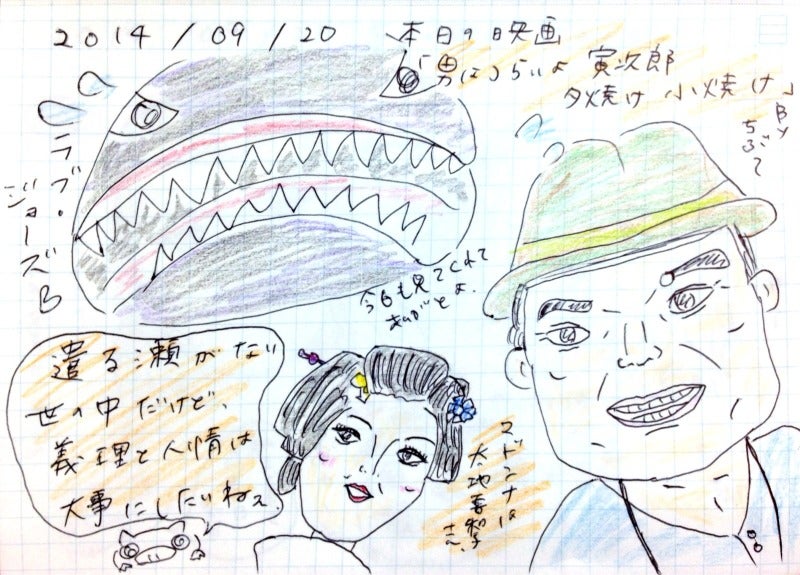 2014/09/20 本日の映画
「男はつらいよ 寅次郎
夕焼け 小焼け」
By
ちぶて
ラブ・
ジョーズB
今日も見てくれて
ありがとよ.
遣る瀬がない
世の中だけど、
義理と人情は
大事にしたいねぇ
マドンナは
太地喜和子